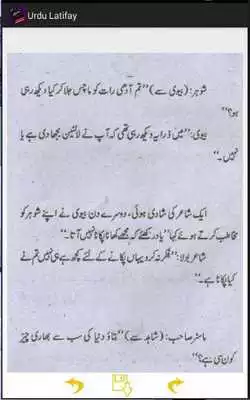 Urdu Latifay
شوہر: (بیوی سے) ’’تم آدھی رات کو ماچس جلا کر کیا دیکھ رہی
ہو؟‘‘
بیوی: ’’میں ذرا یہ دیکھ رہی تھی کہ آپ نے لالٹین بجھا دی ہے یا
نہیں۔‘‘
ایک شاعر کی شادی ہوئی، دوسرے دن بیوی نے اپنے شوہر کو
مخاطب کرتے ہوئے کہا ’’یاد رکھئے کہ مجھے کھانا پکانا نہیں آتا۔‘‘
شاعر بولا: ’’فکر نہ کرو یہاں پکانے کے لئے کچھ ہے ہی نہیں تم نے
کیا پکانا ہے۔‘‘
ماسٹر صاحب: (شاہد سے) ’’بتاؤ دنیا کی سب سے بھاری چیز
کون سی ہے؟‘‘